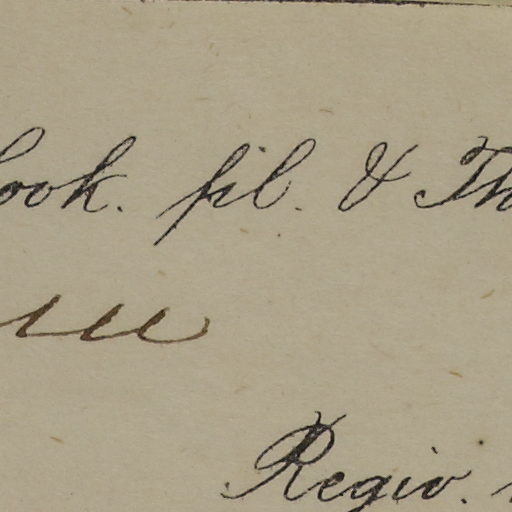 ook. fil. & Th
Regio.